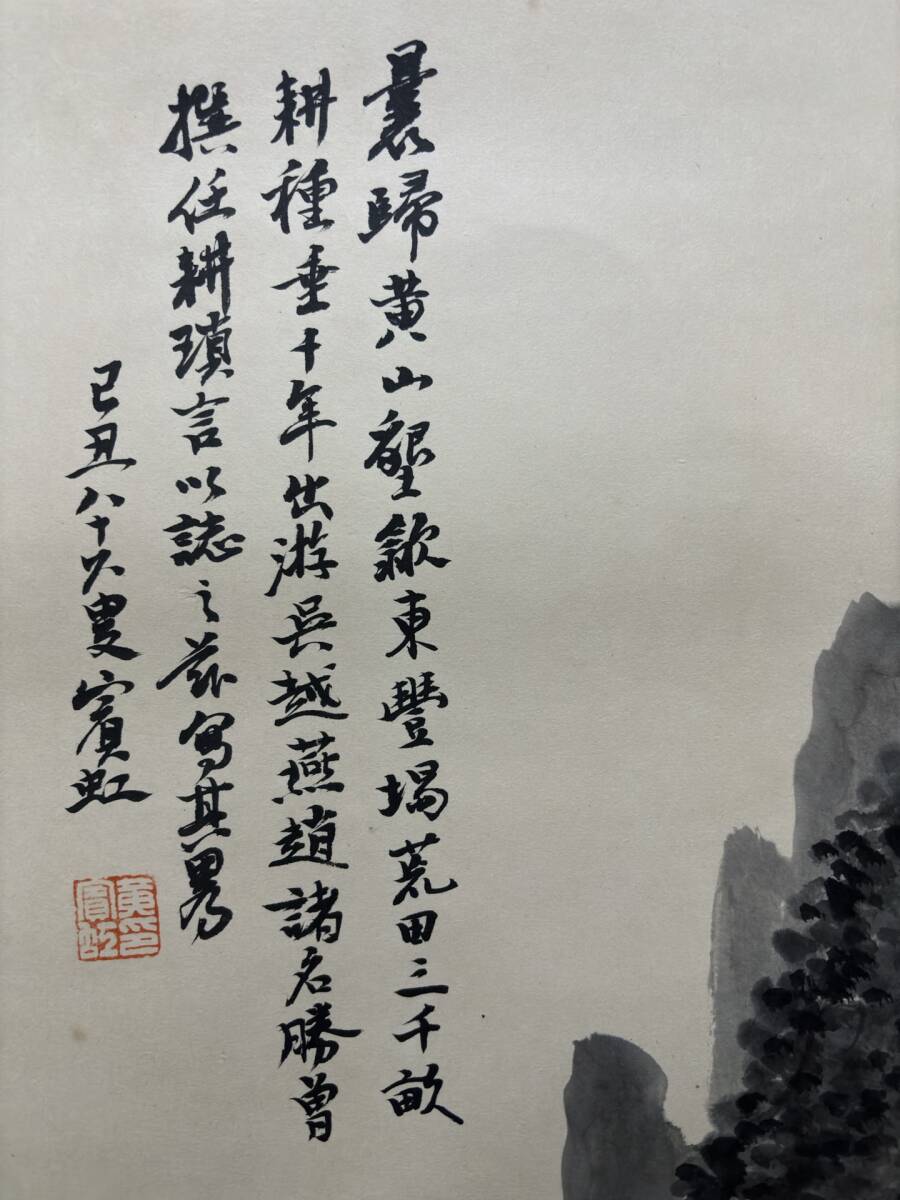 曩歸黄山墾歙東豐堨荒田三千畝
耕種垂十年出游吳越燕趙諸名勝曾
撰任耕瑣言以誌之茲寫其畧
己丑八十六叟賓虹
黄賓虹印